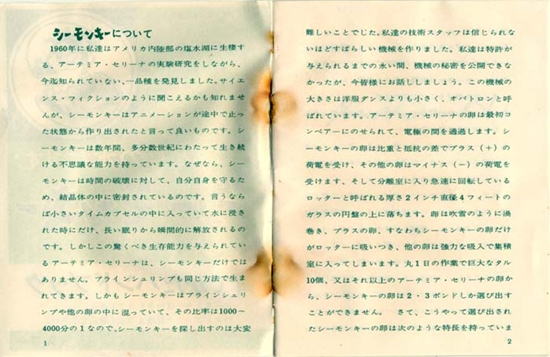 シーモンキーについて
1960年に私達はアメリカ内陸部の塩水湖に生棲す
る、アーテミア・セリーナの実験研究をしながら、
今迄知られていない、一品種を発見しました。サイエ
ンス・フィクションのように聞こえるかも知れませ
んが、シーモンキーはアニメーションが途中で止っ
た状態から作り出されたと言って良いものです。シ
ーモンキーは数年間、多分数世紀にわたって生き続
ける不思議な能力を持っています。なぜなら、シー
モンキーは時間の破壊に対して、自分自身を守るた
め、結晶体の中に密封されているのです。言うなら
ば小さいタイムカプセルの中に入っていて水に浸さ
れた時にだけ、長い眠りから瞬間的に解放されるの
です。しかしこの驚くべき生存能力を与えられてい
るアーテミア・セリーナは、シーモンキーだけでは
ありません。ブラインシュリンプも同じ方法で生ま
れてきます。しかもシーモンキーはブラインシュリ
ンプや他の卵の中に混っていて、その比率は1000〜
4000分の1なので、シーモンキーを探し出すのは大変
1
難しいことでした。私達の技術スタッフは信じられな
いほどすばらしい機械を作りました。私達は特許が
与えられるまでの永い間、機械の秘密を公開できな
かったが、今皆様にお話ししましょう。この機械の
大きさは洋服ダンスよりも小さく、オバトロンと呼
ばれています。アーテミア・セリーナの卵は最初コ
ンベアーにのせられて、電極の間を通過します。シ
ーモンキーの卵は比重と抵抗の差でプラス（＋）の
荷電を受け、その他の卵はマイナス（−）の荷電を
受けます、そして分離室に入り急速に回転している
ロッターと呼ばれる厚さ2インチ直径4フィートの
ガラスの円盤の上に落ちます。卵は吹雪のように渦
巻き、プラスの卵、すなわちシーモンキーの卵だけ
がロッターに吸いつき、他の卵は強力な吸入で集積
室に入ってしまいます。丸1日の作業で巨大なタル
10個、又はそれ以上のアーテミア・セリーナの卵か
ら、シーモンキーの卵は2・3ポンドしか選び出す
ことができません。 さて、こうやって選び出され
たシーモンキーの卵は次のような特長を持っていま
2